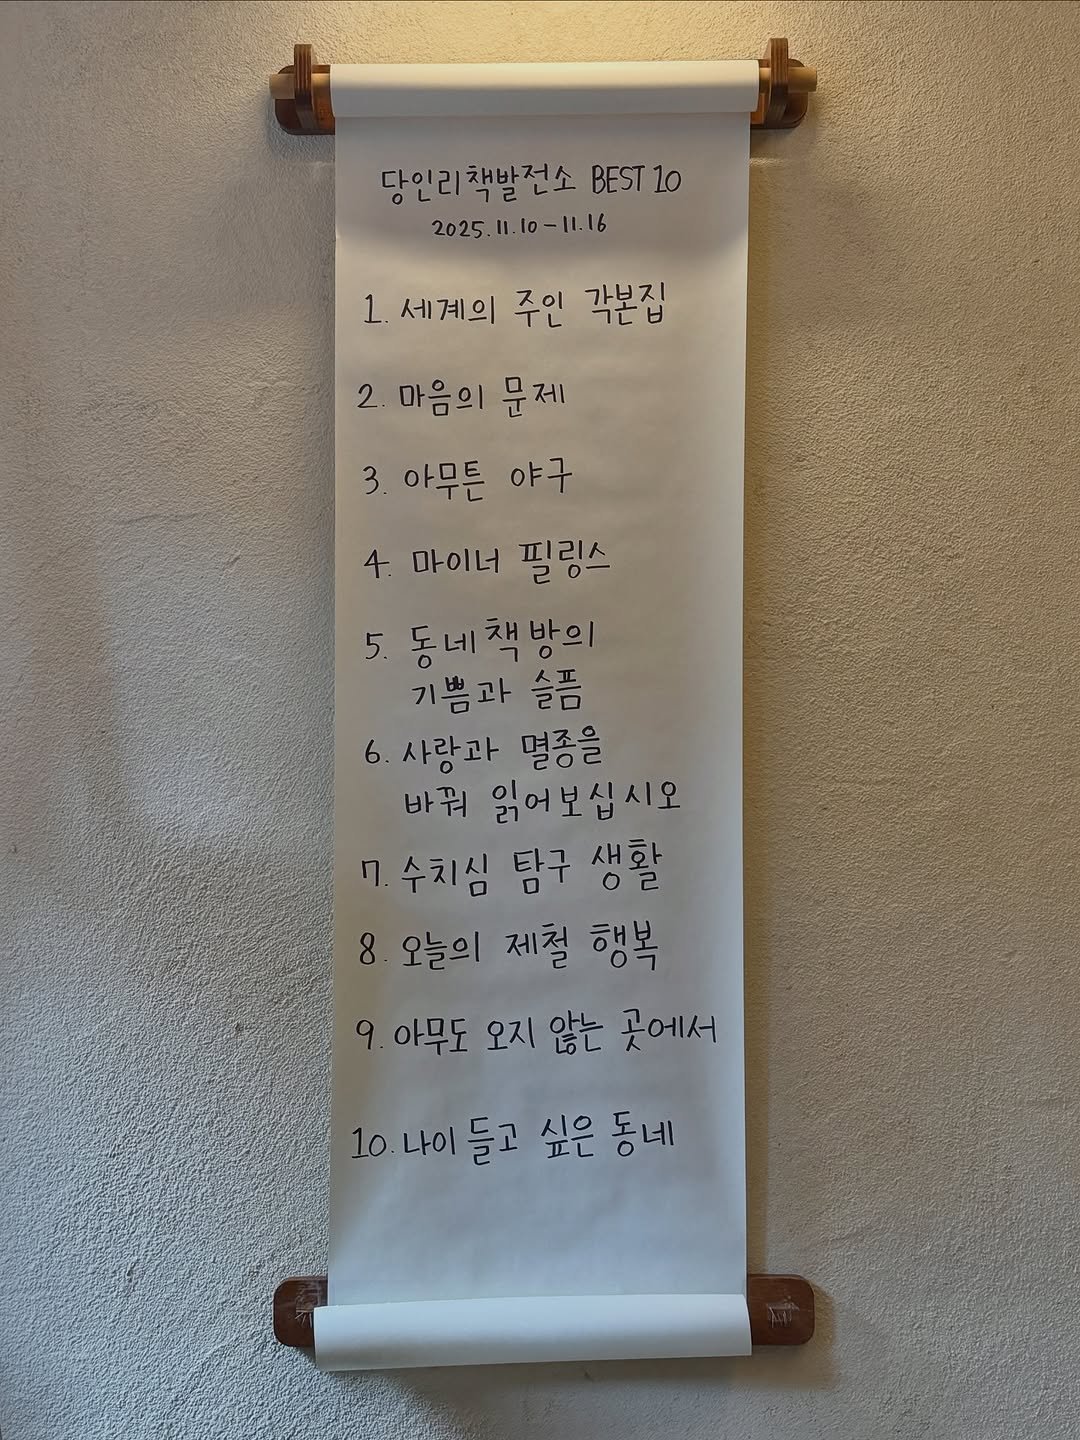 당인리책발전소 BEST 10
2025.11.10-11.16
1. 세계의 주인 각본집
2. 마음의 문제
3. 아무튼 야구
4. 마이너 필링스
5. 동네책방의
기쁨과 슬픔
6. 사랑과 멸종을
바꿔 읽어보십시오
7. 수치심 탐구 생활
8. 오늘의 제철 행복
9. 아무도 오지 않는 곳에서
10. 나이 들고 싶은 동네